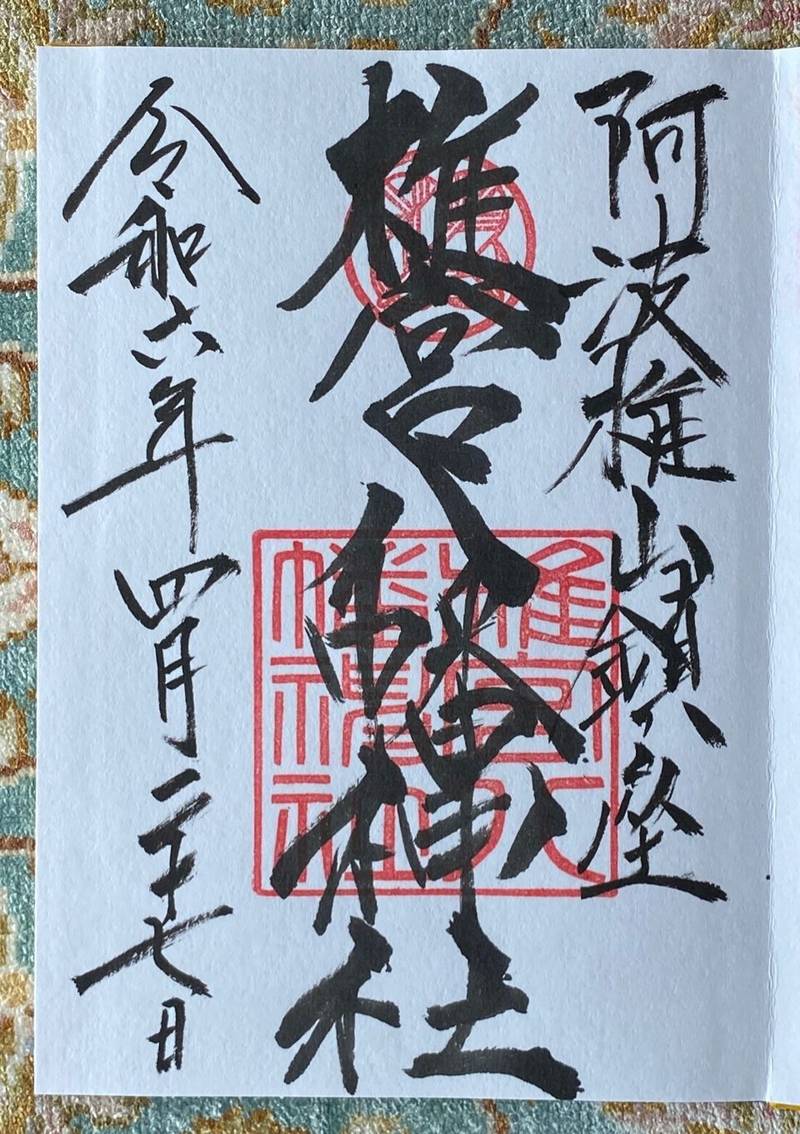 阿波椎山鎮座
椎宮八幡神社
令和六年四月二十七日
椎宮八
幡神社